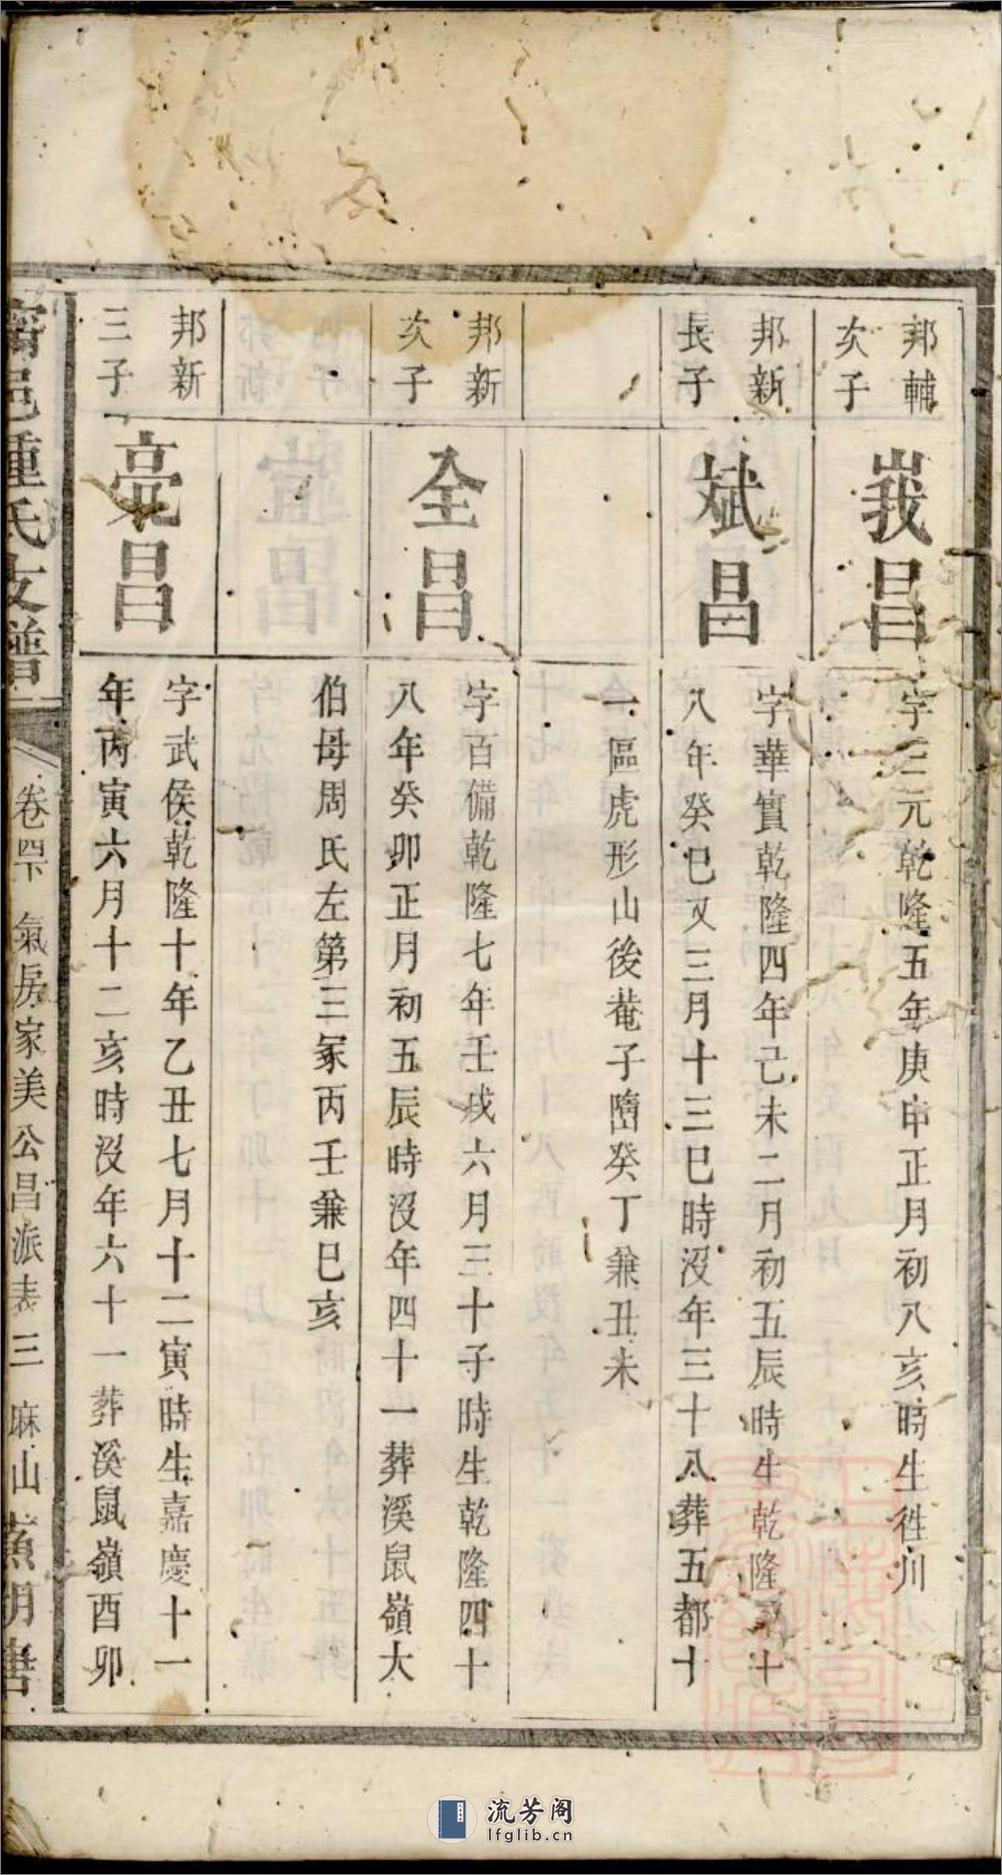 邦輔
次子
峩昌
字三元乾隆五年庚申正月初八亥時生徃川
邦新
長子
斌昌
字華實乾隆四年己未二月初五辰時生乾隆三十
八年癸巳又三月十三巳時沒年三十八葬五都十
一區虎形山後菴子隯癸丁兼丑未
邦新
次子
全昌
字百備乾隆七年壬戌六月三十子時生乾隆四十
八年癸卯正月初五辰時沒年四十一葬溪鼠嶺大
伯母周氏左第三冢丙壬兼巳亥
邦新
三子
亮昌
字武侯乾隆十年乙丑七月十二寅時生嘉慶十一
年丙寅六月十二亥時沒年六十一葬溪鼠嶺酉卯
邑鍾氏支譜
卷四下 氣房家美公昌派表三 麻山
流芳阁
lfglib.cn